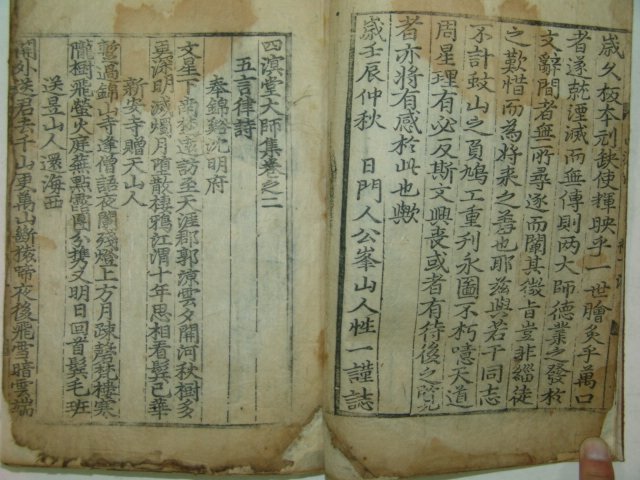 歲久板本刓缺使輝映乎一世膾炙乎萬口
者遂就湮滅而無傳則两大師德業之發於
文辭間者無所尋逐而闡其微旨豈非緇徒
之歎惜而爲將來之善也耶玆與若干同志
不計蚊山之負鳩工重刋永圖不朽噫天道
周星理有必反斯文興喪或者有待後之覽
者亦將有感於此也歟
歲壬辰仲秋 日門人公峯山人性一謹誌
四溟堂大師集卷之二
五言律詩
奉錦谿沈明府
文星下南極遠訪至天涯郡郭凉雲夕開河秋樹多
更深明滅燭月墮散棲鴉江渭十年思相看鬂已華
新安寺贈天山人
暫過錦山寺逢僧語夜闌殘燈上方月疎磬梵樓寒
隴樹飛螢火庭蕪點露團分携又明日回首鬂毛班
送昱山人還海西
關外送君去千山更萬山斷猿啼夜後飛雪暗雲端